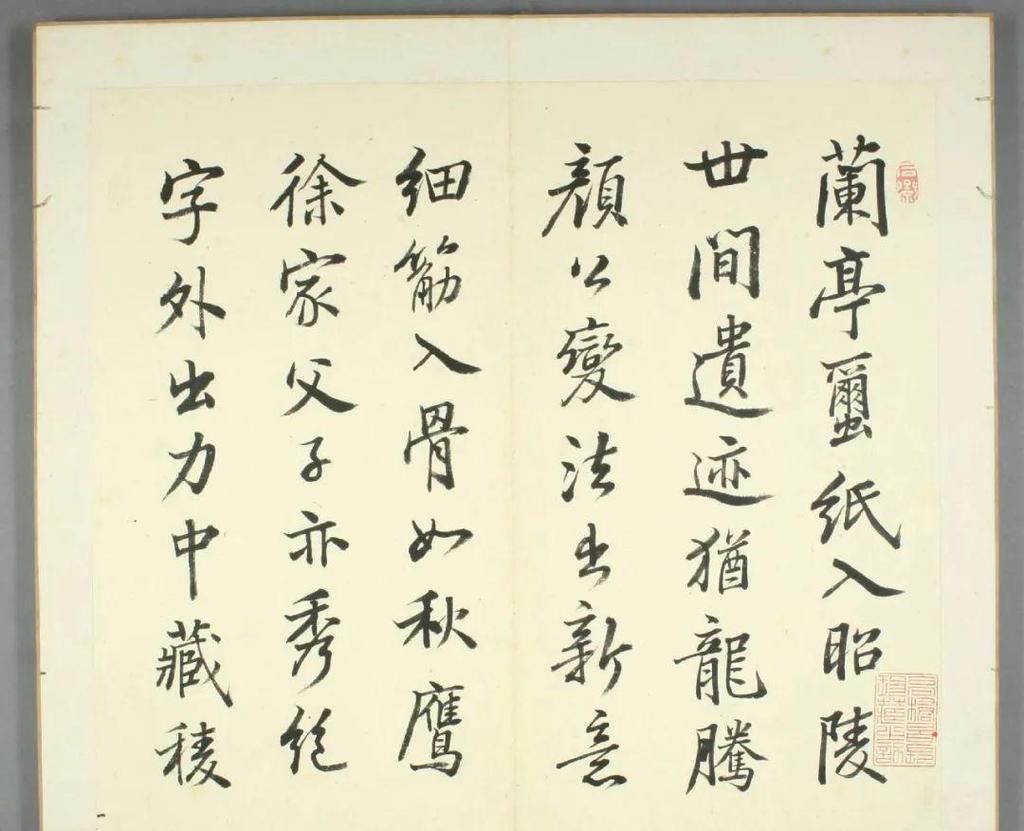 蘭亭璽紙入昭陵
世間遺迹猶龍騰
顏公變法出新意
細筋入骨如秋鷹
徐家父子亦秀絕
字外出力中藏稜